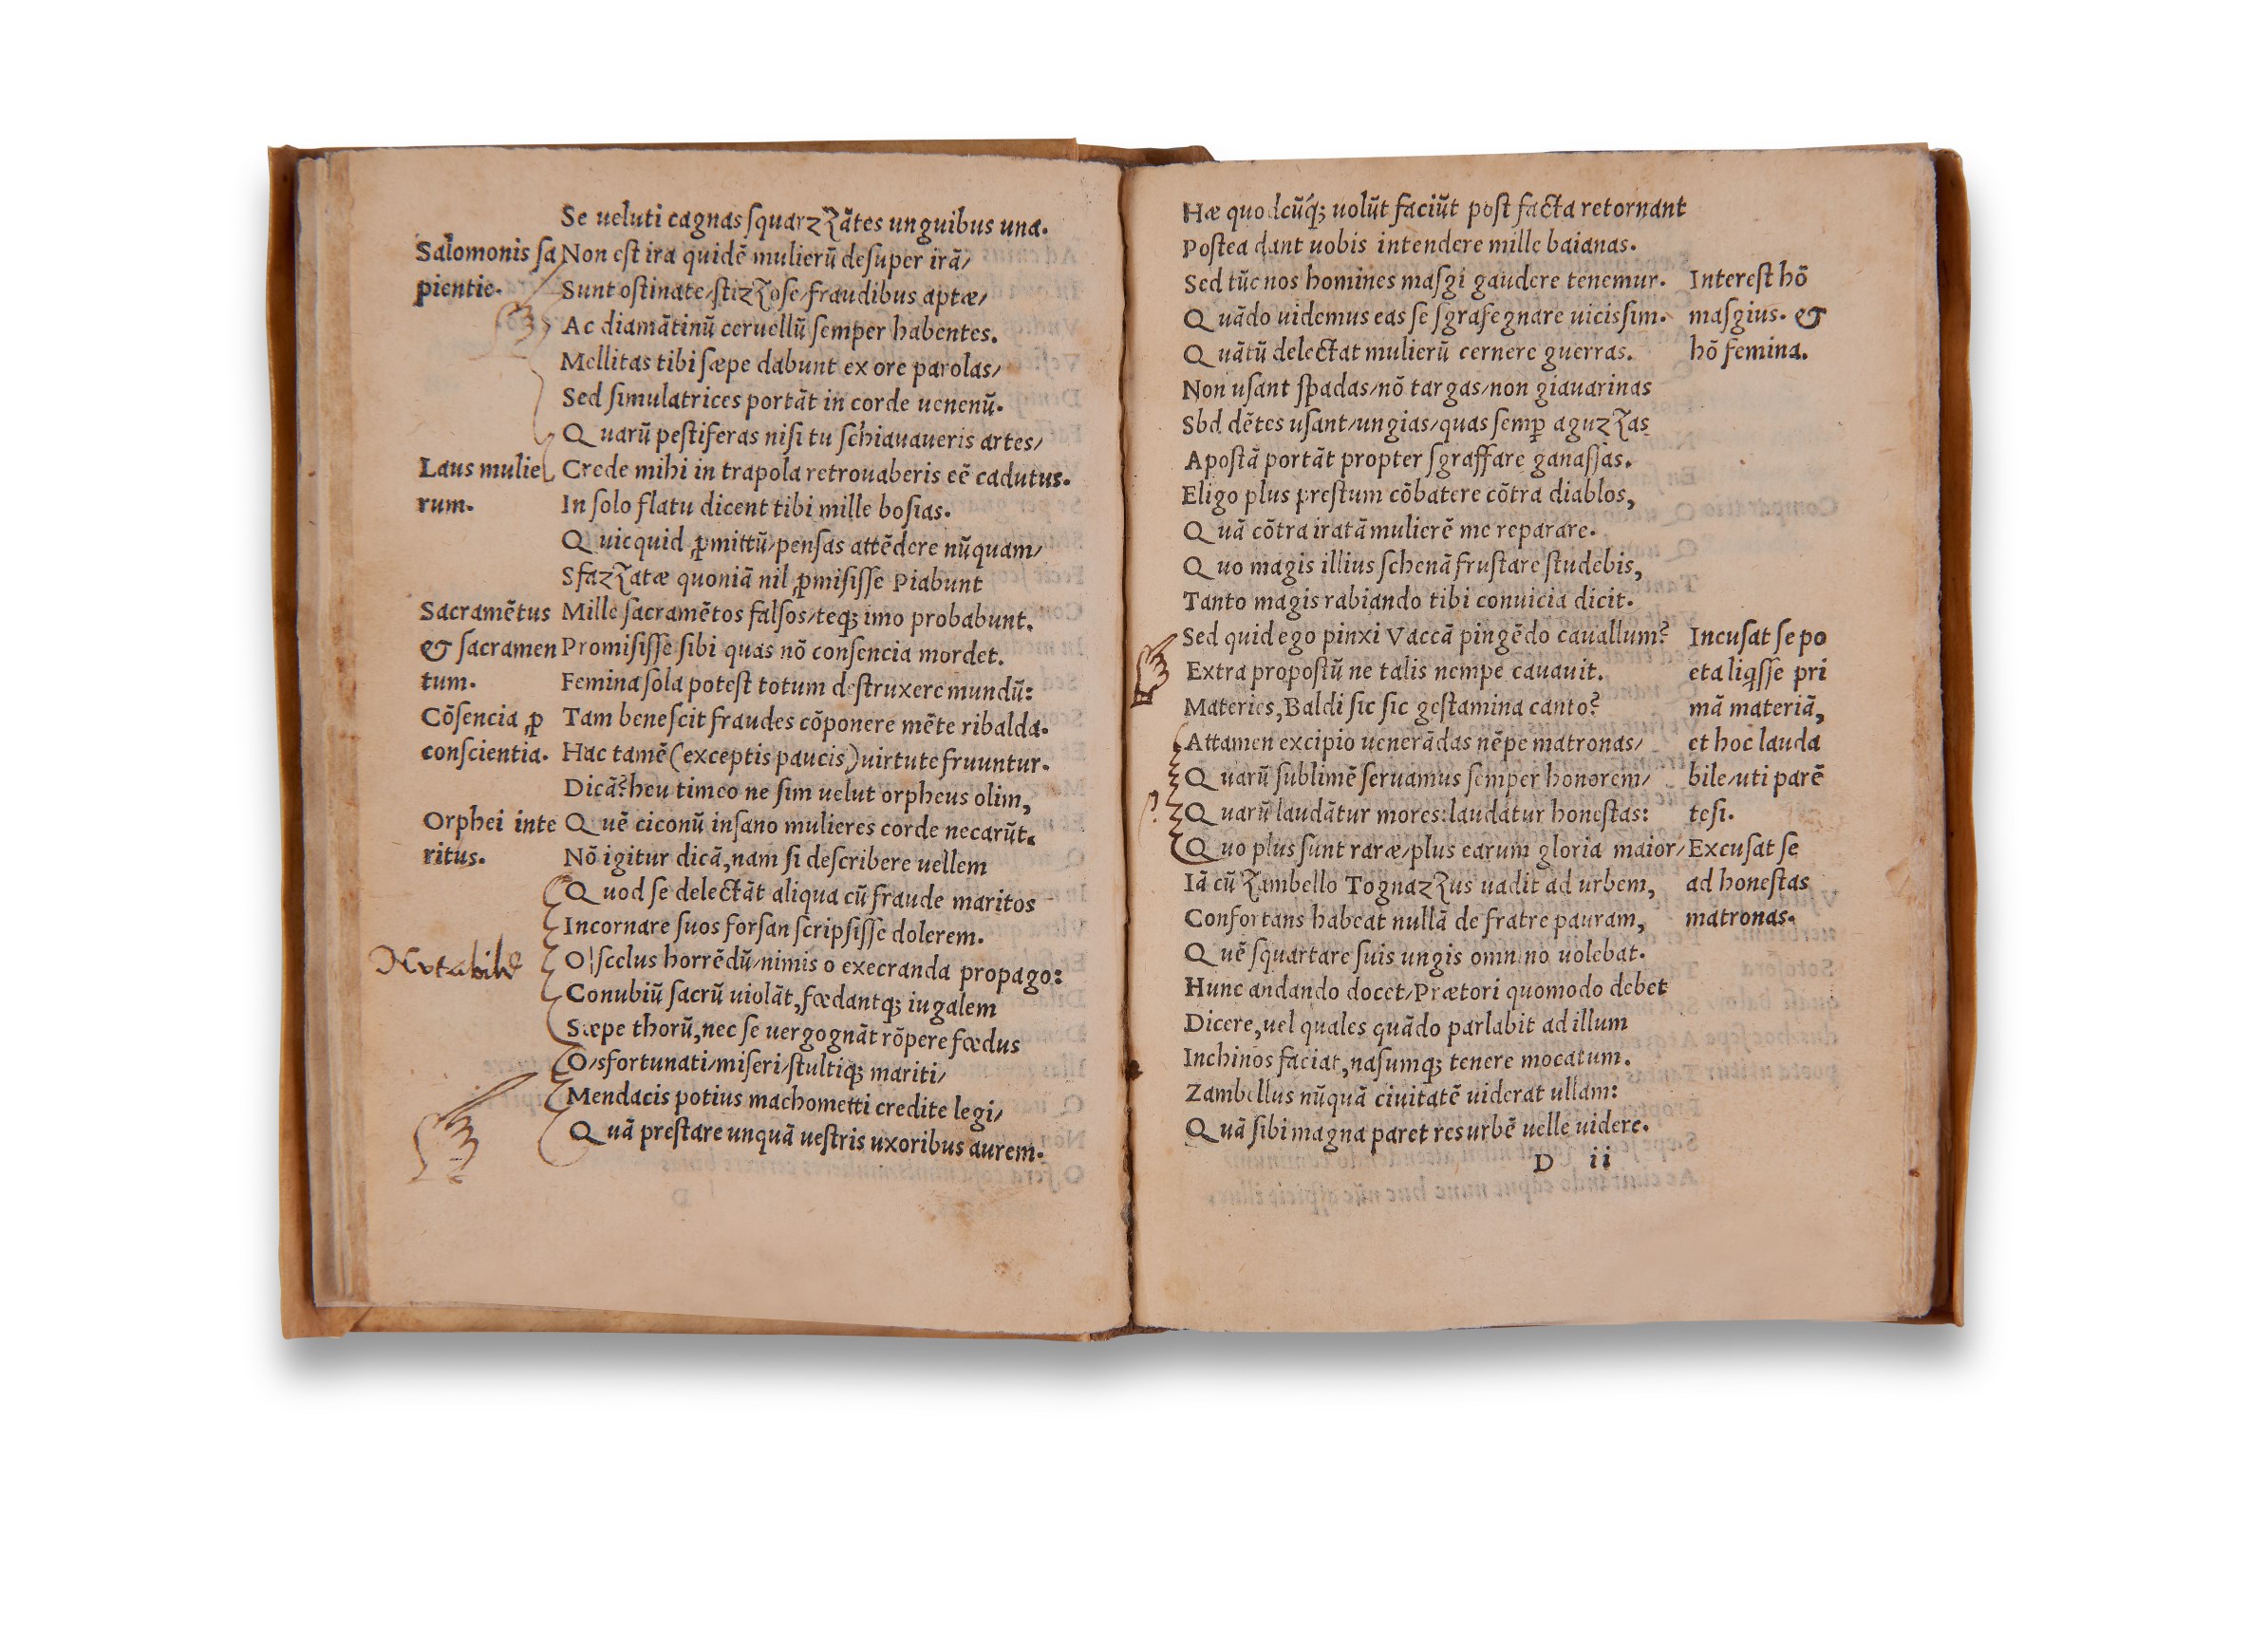 Se ueluti cagnas ſquarzzãtes unguibus una.
Salomonis ſa
pientie.
Non eſt ira quidẽ mulierũ deſuper irã/
Sunt oſtinate/ſtizzoſe/fraudibus aptæ/
Ac diamãtinũ ceruellũ ſemper habentes.
Mellitas tibi ſæpe dabunt ex ore parolas/
Sed ſimulatrices portãt in corde uenenũ.
Quarũ peſtiferas niſi tu ſchiauaueris artes/
Laus mulie
rum.
Crede mihi in trapola retrouaberis eẽ cadutus.
In ſolo flatu dicent tibi mille boſias.
Quicquid ꝓmittũ/penſas attẽdere nũquam/
Sfazzatæ quoniã nil ꝓmiſiſſe piabunt
Sacramẽtus
& ſacramen
tum.
Mille ſacramẽtos falſos/teq; imo probabunt.
Promiſiſſe ſibi quas nõ conſencia mordet.
Femina ſola poteſt totum deſtruxere mundũ:
Cõſencia ꝓ
conſcientia.
Tam bene ſcit fraudes cõponere mẽte ribalda.
Hac tamẽ (exceptis paucis) uirtute fruuntur.
Dicã? heu timeo ne ſim uelut orpheus olim,
Orphei inte
ritus.
Quẽ ciconũ inſano mulieres corde necarũt.
Nõ igitur dicã, nam ſi deſcribere uellem
Quod ſe delectãt aliqua cũ fraude maritos
Incornare ſuos forſan ſcripſiſſe dolerem.
Notabile
O ſcelus horrẽdũ/nimis o execranda propago:
Conubiũ ſacrũ uiolãt, fœdantq; iugalem
Sæpe thorũ, nec ſe uergognãt rõpere fœdus
O/sfortunati/miſeri/ſtultiq; mariti/
Mendacis potius machometti credite legi/
Quã preſtare unquã ueſtris uxoribus aurem.
Hæ quodcũq; uolũt faciũt poſt facta retornant
Poſtea dant uobis intendere mille baianas.
Sed tũc nos homines maſgi gaudere tenemur.
Quãdo uidemus eas ſe ſgrafegnare uiciſſim.
Quãtũ delectat mulierũ cernere guerras.
Intereſt hõ
maſgius. &
hõ femina.
Non uſant ſpadas/nõ targas/non giauarinas
Sbd dẽtes uſant/ungias/quas ſemꝑ aguzzas
Apoſtã portãt propter ſgraffare ganaſſas.
Eligo plus preſtum cõbatere cõtra diablos,
Quã cõtra iratã mulierẽ me reparare.
Quo magis illius ſchenã fruſtare ſtudebis,
Tanto magis rabiando tibi conuicia dicit.
Sed quid ego pinxi Vaccã pingẽdo cauallum?
Extra propoſtũ ne talis nempe cauauit.
Materies, Baldi ſic ſic geſtamina canto?
Incuſat ſe po
eta liq̃ſſe pri
mã materiã,
et hoc lauda
bile/uti parẽ
teſi.
Attamen excipio uenerãdas nẽpe matronas/
Quarũ ſublimẽ ſeruamus ſemper honorem/
Quarũ laudãtur mores: laudatur honeſtas:
Quo plus ſunt raræ/plus earum gloria maior/
Excuſat ſe
ad honeſtas
matronas.
Iã cũ Zambello Tognazzus uadit ad urbem,
Confortans habeat nullã de fratre pauram,
Quẽ ſquartare ſuis ungis omnino uolebat.
Hunc andando docet/Prætori quomodo debet
Dicere, uel quales quãdo parlabit ad illum
Inchinos faciat, naſumq; tenere mocatum.
Zambellus nũquã ciuitatẽ uiderat ullam:
Quã ſibi magna paret res urbẽ uelle uidere.
D ii